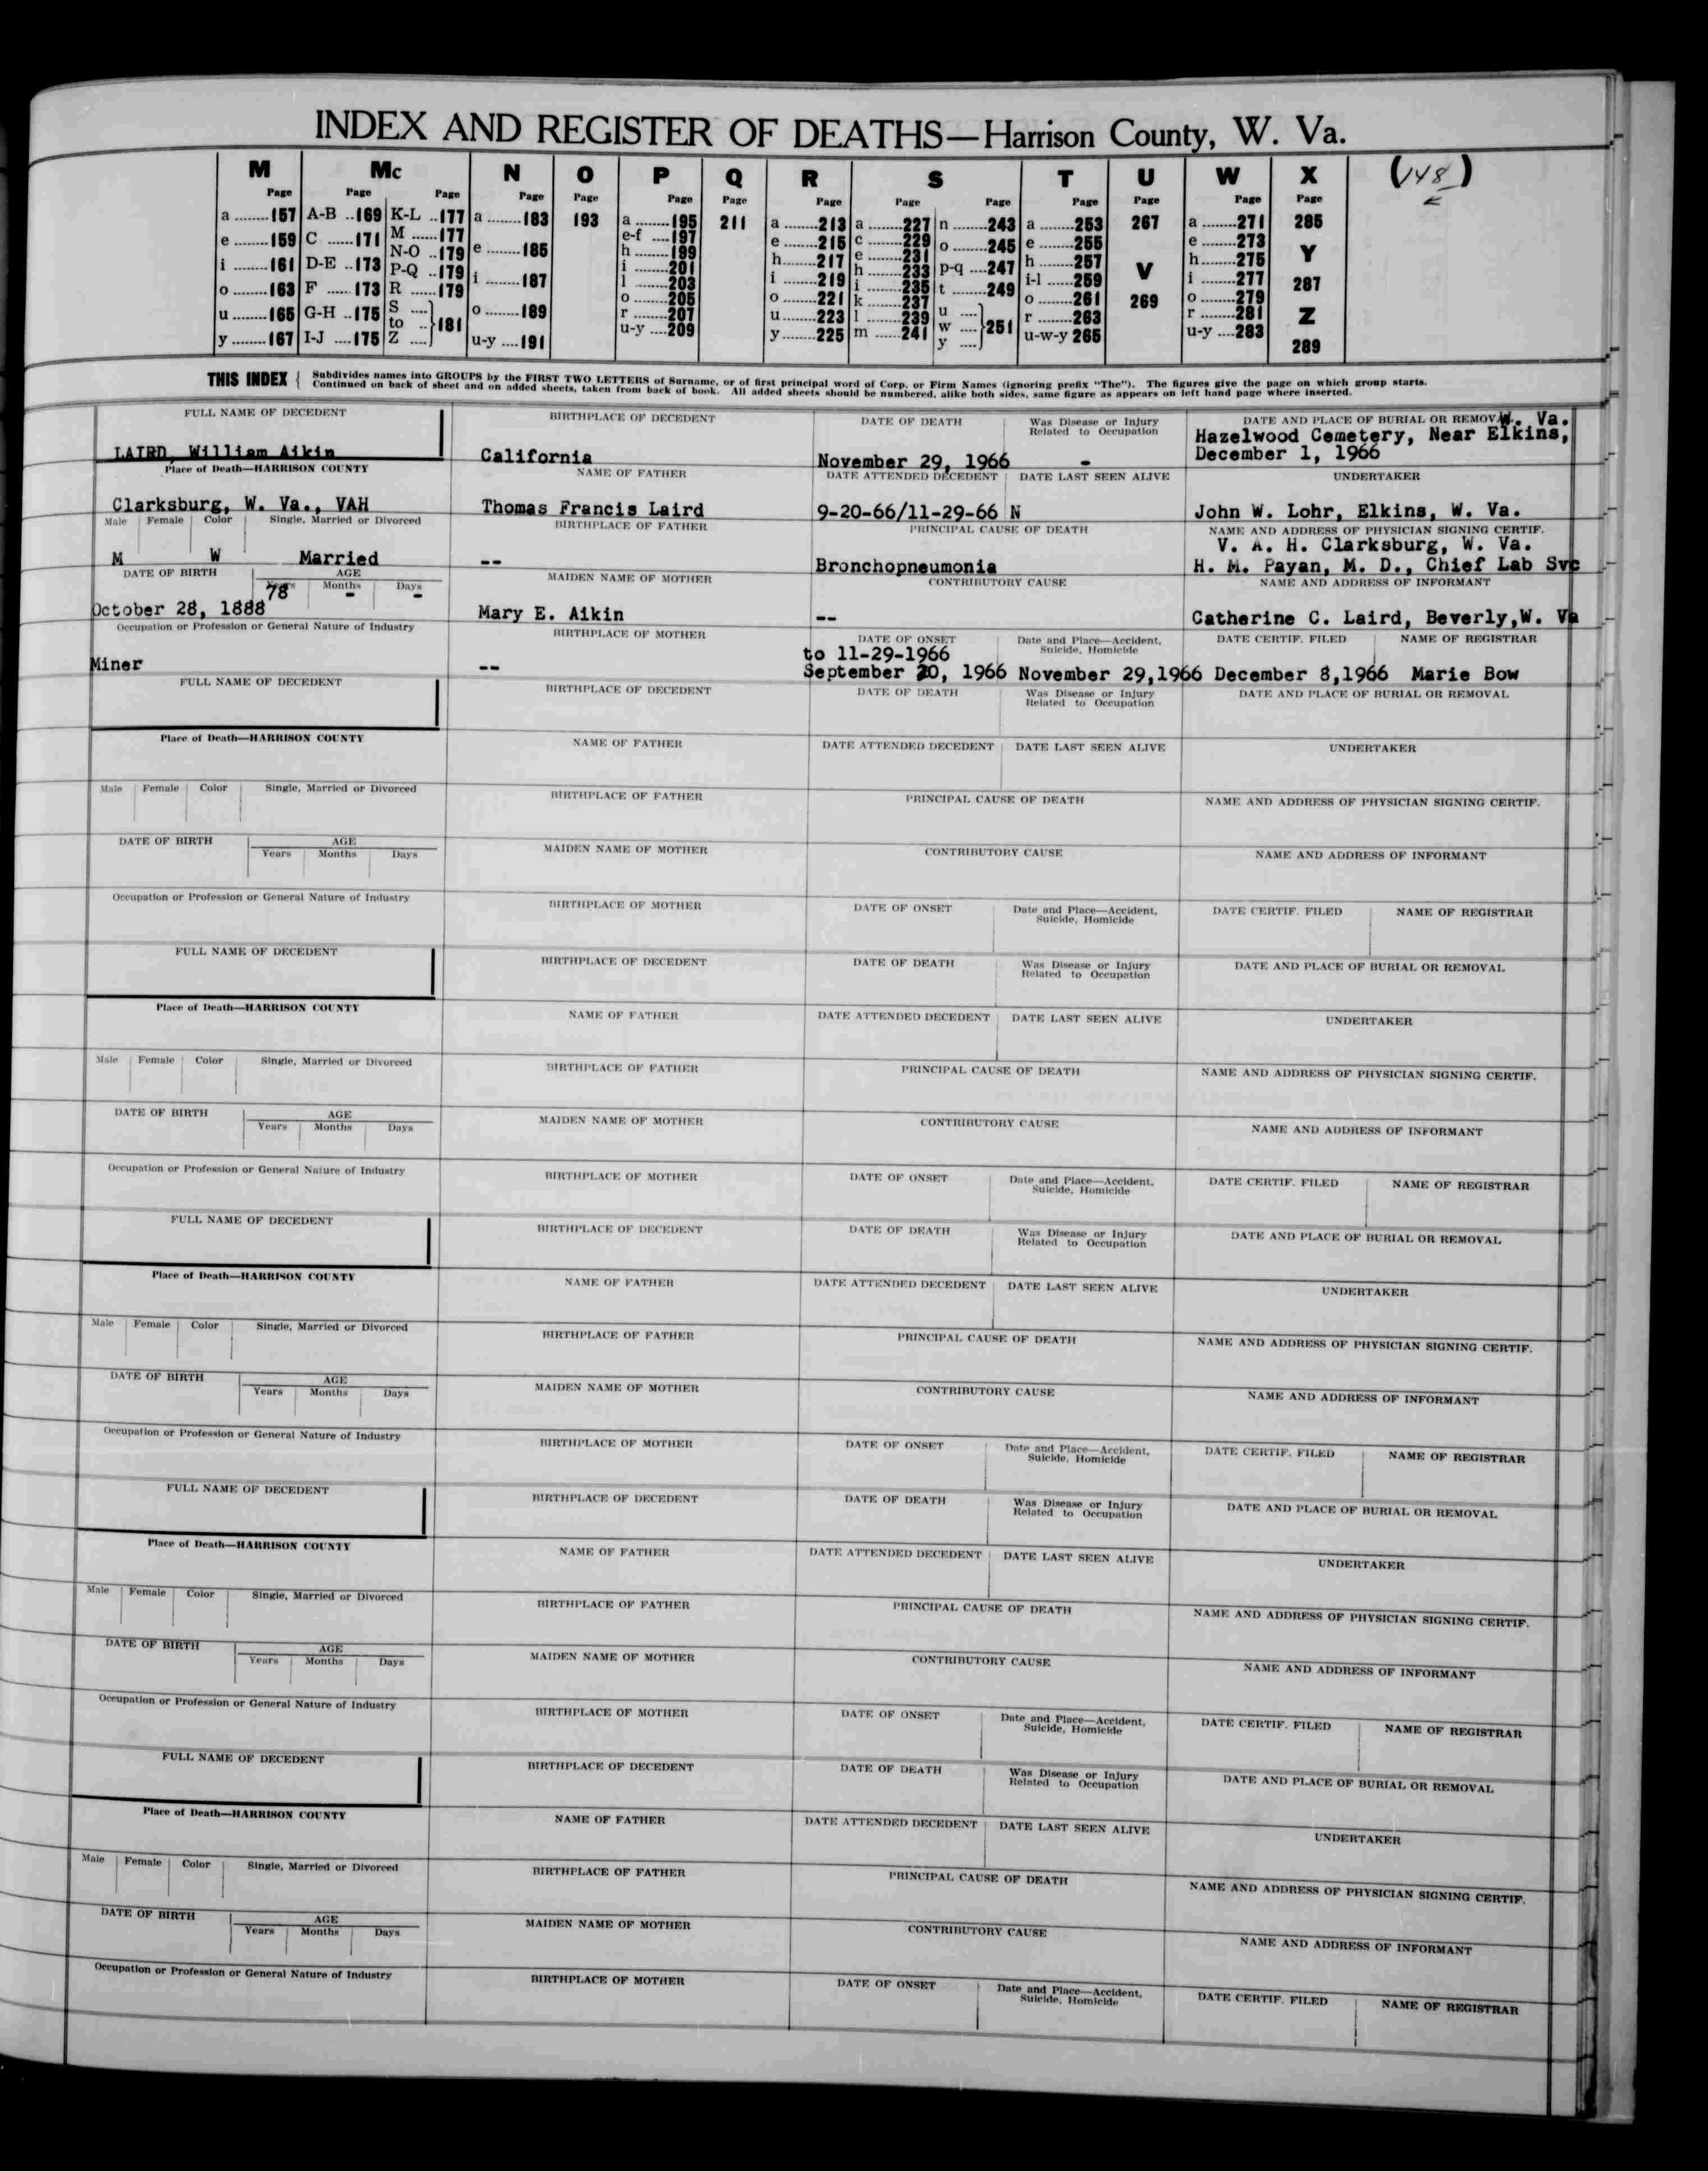 INDEX AND REGISTER OF DEATHS—Harrison County, W. Va.
M Mc N O P Q R S T U W X (148)
Page Page Page Page Page Page Page Page Page Page Page Page Page Page
a ........157 A-B ..169 K-L ..177 a ........183 193 a ........195 211 a ........213 a ........227 n ........243 a ........253 267 a ........271 285
e ........159 C ......171 M ......177 e ........185 e-f ....197 e ........215 c ........229 o ........245 e ........255 V e ........273 Y
i ........161 D-E ..173 N-O ..179 i ........187 h ........199 h........217 e ........231 p-q ....247 h ........257 269 h........275 287
o ........163 F ......173 P-Q ..179 o ........189 i ........201 i ........219 h ........233 t ........249 i-l ......259 i ........277 Z
u ........165 G-H ..175 R ......179 u-y ....191 l ........203 o ........221 i ........235 u .... o ........261 o ........279 289
y ........167 I-J ....175 S .... to .. Z .... }181 o ........205 u........223 k ........237 w .... }251 r ........263 r ........281
r ........207 y........225 l ........239 y .... u-w-y 265 u-y ....283
u-y ....209 m ......241
THIS INDEX { Subdivides names into GROUPS by the FIRST TWO LETTERS of Surname, or of first principal word of Corp. or Firm Names (ignoring prefix "The"). The figures give the page on which group starts.
Continued on back of sheet and on added sheets, taken from back of book. All added sheets should be numbered, alike both sides, same figure as appears on left hand page where inserted.
FULL NAME OF DECEDENT BIRTHPLACE OF DECEDENT DATE OF DEATH Was Disease or Injury Related to Occupation DATE AND PLACE OF BURIAL OR REMOVAL W. Va.
Hazelwood Cemetery, Near Elkins,
LAIRD, William Aikin California November 29, 1966 - December 1, 1966
Place of Death—HARRISON COUNTY NAME OF FATHER DATE ATTENDED DECEDENT DATE LAST SEEN ALIVE UNDERTAKER
Clarksburg, W. Va., VAH Thomas Francis Laird 9-20-66/11-29-66 N John W. Lohr, Elkins, W. Va.
Male Female Color Single, Married or Divorced BIRTHPLACE OF FATHER PRINCIPAL CAUSE OF DEATH NAME AND ADDRESS OF PHYSICIAN SIGNING CERTIF.
V. A. H. Clarksburg, W. Va.
M W Married -- Bronchopneumonia H. M. Payan, M. D., Chief Lab Svc
DATE OF BIRTH AGE Years Months Days MAIDEN NAME OF MOTHER CONTRIBUTORY CAUSE NAME AND ADDRESS OF INFORMANT
October 28, 1888 78 - - Mary E. Aikin -- Catherine C. Laird, Beverly,W. Va
Occupation or Profession or General Nature of Industry BIRTHPLACE OF MOTHER DATE OF ONSET Date and Place—Accident, Suicide, Homicide DATE CERTIF. FILED NAME OF REGISTRAR
to 11-29-1966
Miner -- September 20, 1966 November 29,1966 December 8,1966 Marie Bow
FULL NAME OF DECEDENT BIRTHPLACE OF DECEDENT DATE OF DEATH Was Disease or Injury Related to Occupation DATE AND PLACE OF BURIAL OR REMOVAL
Place of Death—HARRISON COUNTY NAME OF FATHER DATE ATTENDED DECEDENT DATE LAST SEEN ALIVE UNDERTAKER
Male Female Color Single, Married or Divorced BIRTHPLACE OF FATHER PRINCIPAL CAUSE OF DEATH NAME AND ADDRESS OF PHYSICIAN SIGNING CERTIF.
DATE OF BIRTH AGE Years Months Days MAIDEN NAME OF MOTHER CONTRIBUTORY CAUSE NAME AND ADDRESS OF INFORMANT
Occupation or Profession or General Nature of Industry BIRTHPLACE OF MOTHER DATE OF ONSET Date and Place—Accident, Suicide, Homicide DATE CERTIF. FILED NAME OF REGISTRAR
FULL NAME OF DECEDENT BIRTHPLACE OF DECEDENT DATE OF DEATH Was Disease or Injury Related to Occupation DATE AND PLACE OF BURIAL OR REMOVAL
Place of Death—HARRISON COUNTY NAME OF FATHER DATE ATTENDED DECEDENT DATE LAST SEEN ALIVE UNDERTAKER
Male Female Color Single, Married or Divorced BIRTHPLACE OF FATHER PRINCIPAL CAUSE OF DEATH NAME AND ADDRESS OF PHYSICIAN SIGNING CERTIF.
DATE OF BIRTH AGE Years Months Days MAIDEN NAME OF MOTHER CONTRIBUTORY CAUSE NAME AND ADDRESS OF INFORMANT
Occupation or Profession or General Nature of Industry BIRTHPLACE OF MOTHER DATE OF ONSET Date and Place—Accident, Suicide, Homicide DATE CERTIF. FILED NAME OF REGISTRAR
FULL NAME OF DECEDENT BIRTHPLACE OF DECEDENT DATE OF DEATH Was Disease or Injury Related to Occupation DATE AND PLACE OF BURIAL OR REMOVAL
Place of Death—HARRISON COUNTY NAME OF FATHER DATE ATTENDED DECEDENT DATE LAST SEEN ALIVE UNDERTAKER
Male Female Color Single, Married or Divorced BIRTHPLACE OF FATHER PRINCIPAL CAUSE OF DEATH NAME AND ADDRESS OF PHYSICIAN SIGNING CERTIF.
DATE OF BIRTH AGE Years Months Days MAIDEN NAME OF MOTHER CONTRIBUTORY CAUSE NAME AND ADDRESS OF INFORMANT
Occupation or Profession or General Nature of Industry BIRTHPLACE OF MOTHER DATE OF ONSET Date and Place—Accident, Suicide, Homicide DATE CERTIF. FILED NAME OF REGISTRAR
FULL NAME OF DECEDENT BIRTHPLACE OF DECEDENT DATE OF DEATH Was Disease or Injury Related to Occupation DATE AND PLACE OF BURIAL OR REMOVAL
Place of Death—HARRISON COUNTY NAME OF FATHER DATE ATTENDED DECEDENT DATE LAST SEEN ALIVE UNDERTAKER
Male Female Color Single, Married or Divorced BIRTHPLACE OF FATHER PRINCIPAL CAUSE OF DEATH NAME AND ADDRESS OF PHYSICIAN SIGNING CERTIF.
DATE OF BIRTH AGE Years Months Days MAIDEN NAME OF MOTHER CONTRIBUTORY CAUSE NAME AND ADDRESS OF INFORMANT
Occupation or Profession or General Nature of Industry BIRTHPLACE OF MOTHER DATE OF ONSET Date and Place—Accident, Suicide, Homicide DATE CERTIF. FILED NAME OF REGISTRAR
FULL NAME OF DECEDENT BIRTHPLACE OF DECEDENT DATE OF DEATH Was Disease or Injury Related to Occupation DATE AND PLACE OF BURIAL OR REMOVAL
Place of Death—HARRISON COUNTY NAME OF FATHER DATE ATTENDED DECEDENT DATE LAST SEEN ALIVE UNDERTAKER
Male Female Color Single, Married or Divorced BIRTHPLACE OF FATHER PRINCIPAL CAUSE OF DEATH NAME AND ADDRESS OF PHYSICIAN SIGNING CERTIF.
DATE OF BIRTH AGE Years Months Days MAIDEN NAME OF MOTHER CONTRIBUTORY CAUSE NAME AND ADDRESS OF INFORMANT
Occupation or Profession or General Nature of Industry BIRTHPLACE OF MOTHER DATE OF ONSET Date and Place—Accident, Suicide, Homicide DATE CERTIF. FILED NAME OF REGISTRAR